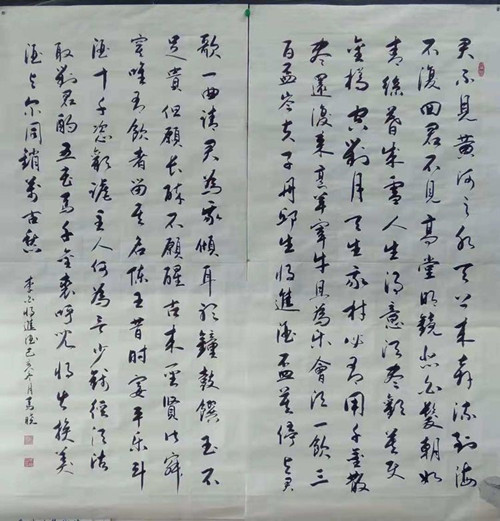 君不見黄河之水天上來奔流到海
不復回君不見高堂明鏡悲白髮朝如
青絲暮成雪人生得意須盡歡莫使
金樽空對月天生我材必有用千金散
盡還復來烹羊宰牛且為樂會須一飲三
百盃岑夫子丹邱生將進酒盃莫停與君
歌一曲請君為我傾耳聽鐘鼓饌玉不
足貴但願長醉不願醒古來聖賢皆寂
寞唯有飲者留其名陳王昔時宴平樂斗
酒十千恣歡謔主人何為言少錢徑須沽
取對君酌五花馬千金裘呼兒將出換美
酒與爾同銷萬古愁
李白將進酒己亥月